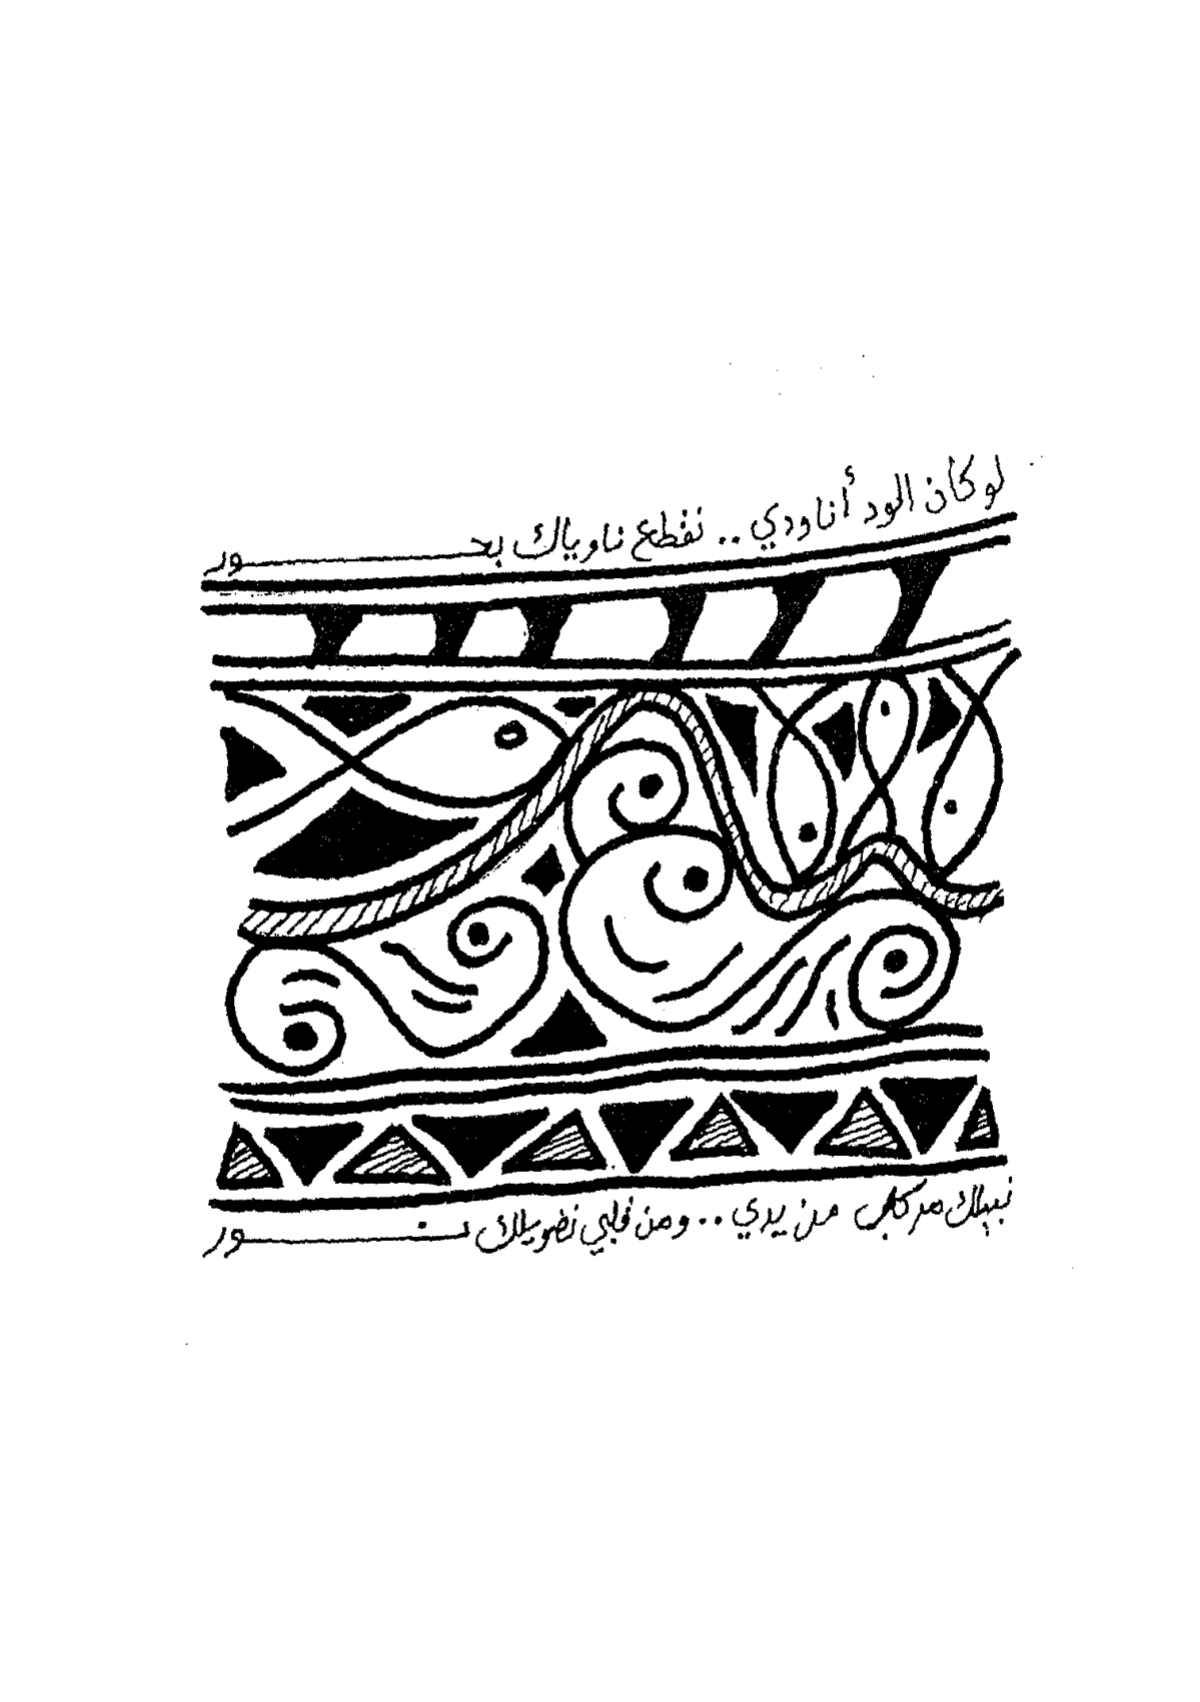 لو كان الود أنا ودي .. نقطع ناوياك بحـــــور
نبيلك مركب من يدي .. ومن قلبي نضويلك نـــــور